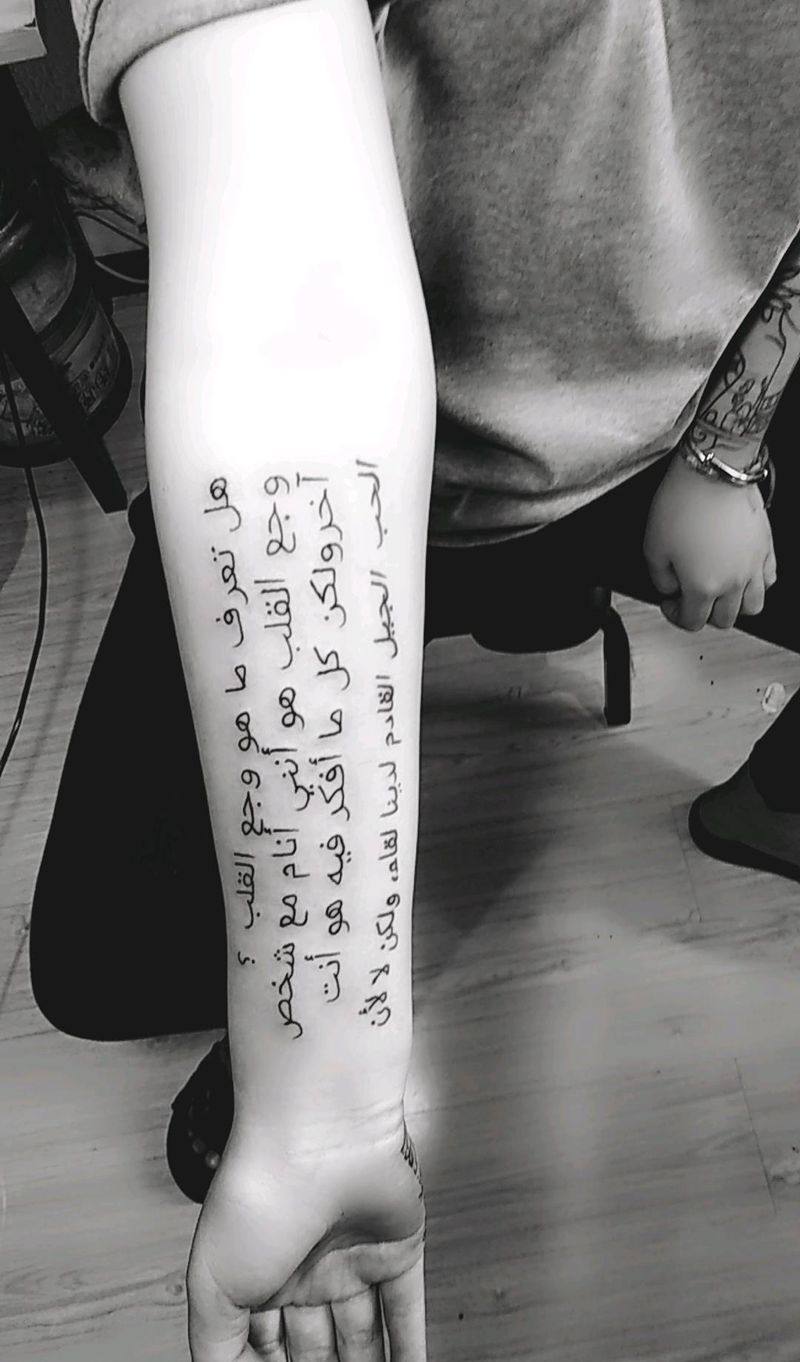 هل تعرف ما هو وجع القلب ؟
وجع القلب هو أنني أنام مع شخص
آخرولكن كل ما أفكر فيه هو أنت
الحب الجميل القادم لدينا لقاء، ولكن لا لأن